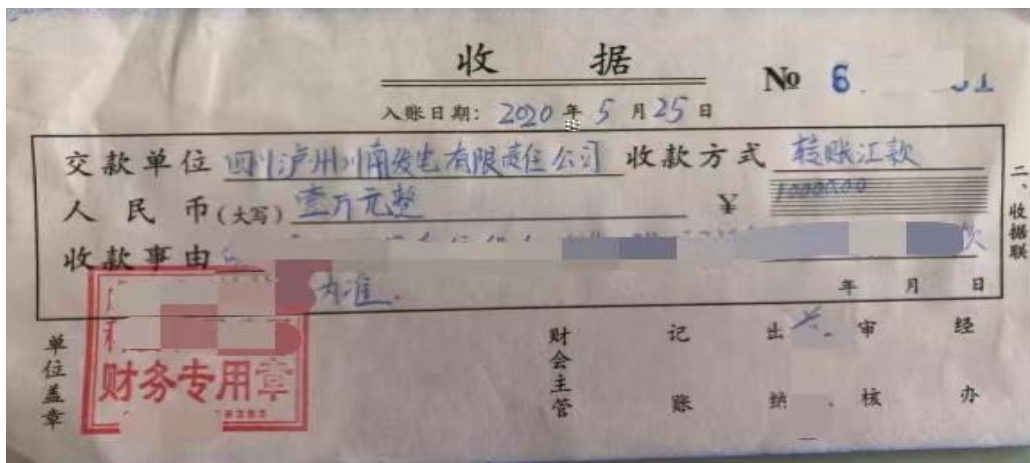 收 据
No 6
入账日期: 2020 年 5 月 25 日
交款单位 四川泸州川南发电有限责任公司 收款方式 转账汇款
人民币(大写) 壹万元整 ¥ 1000000
收款事由 款
为准.
年 月 日
二、收据联
单位盖章
财务专用章
财会主管 记账 出纳 审核 经办